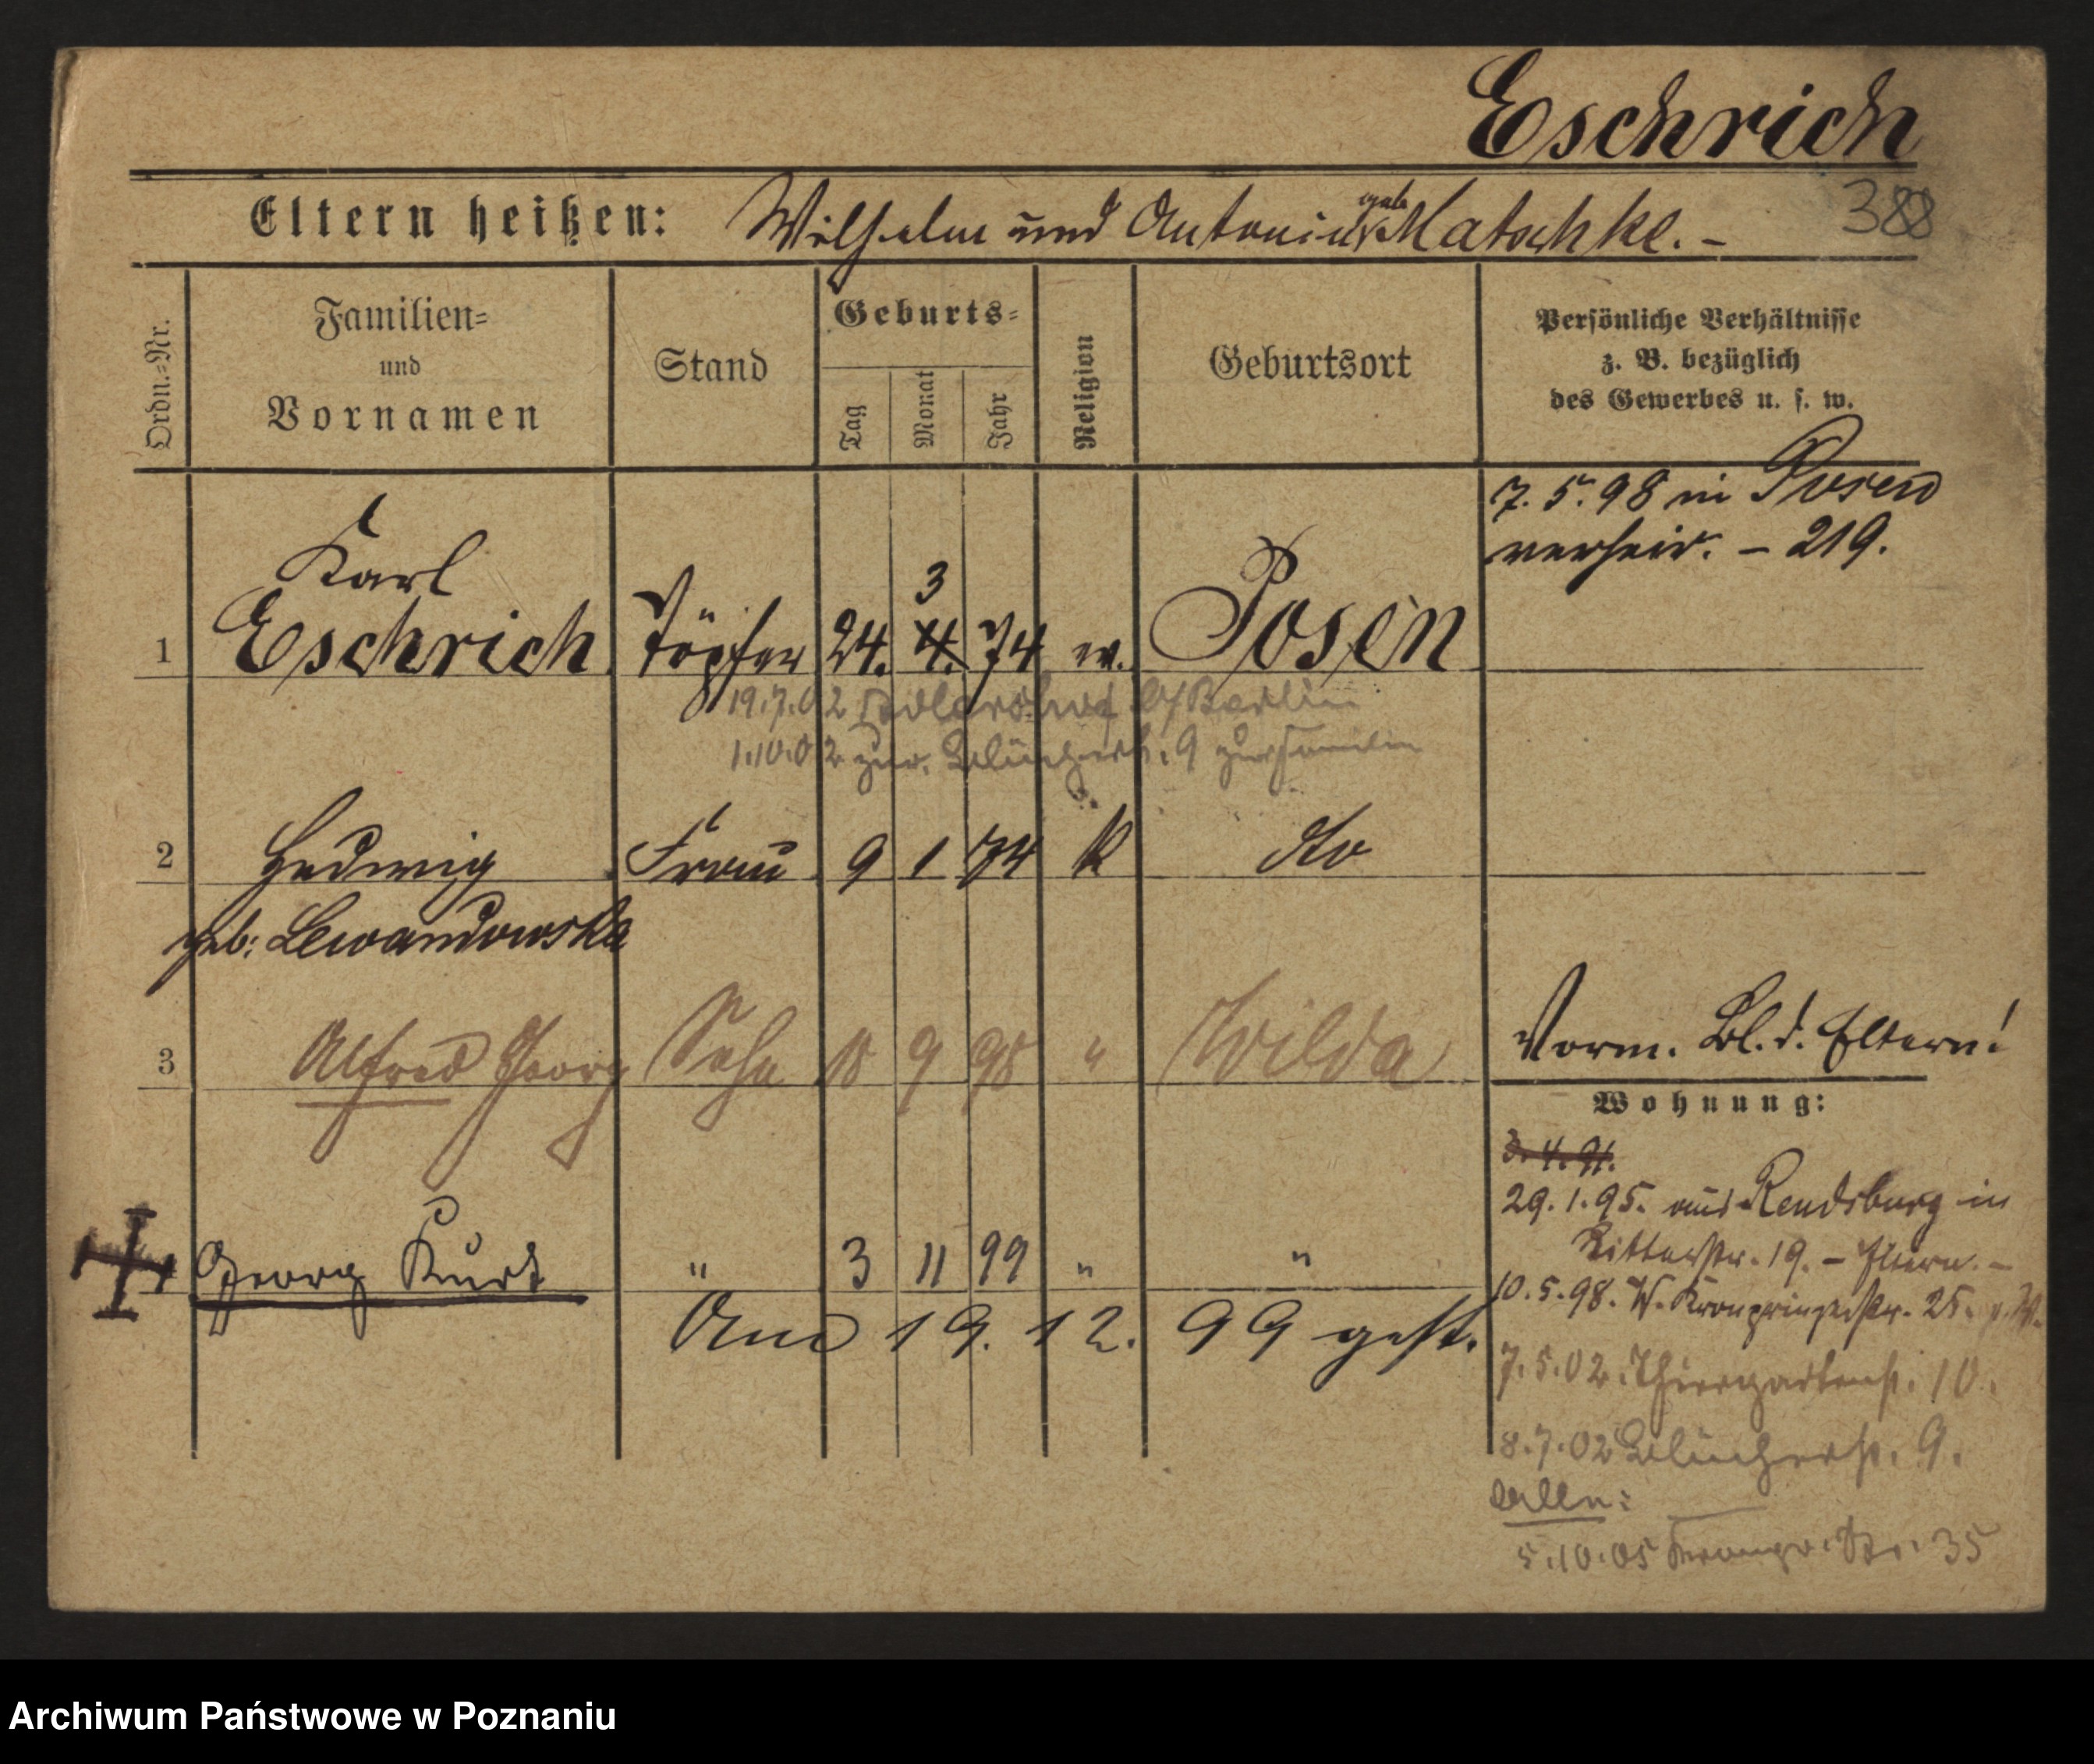 Eschrich
Eltern heißen: Wilhelm und Antonie geb. Matschke. –
388
Ordn.=Nr.
Familien=
und
Vornamen
Stand
Geburts=
Tag
Monat
Jahr
Religion
Geburtsort
Persönliche Verhältnisse
z. B. bezüglich
des Gewerbes u. s. w.
7. 5. 98 in Posen
verheir. – 219.
1
Karl
Eschrich
Töpfer
24. 4. 3 74
ev.
Posen
19.7.02 Adlershof b/Berlin
1.10.02 zur. Blücherst. 9 zur Familie
2
Hedwig
geb: Lewandowska
Frau
9 1 74
k
do
3
Alfred Georg
Sohn
18 9 98
"
Wilda
Vorm. Bl. d. Eltern!
Georg Kurt
"
3 11 99
"
"
Am 19. 12. 99 gest.
Wohnung:
3. 4. 91.
29. 1. 95. aus Rendsburg in
Ritterstr. 19. – Eltern. –
10. 5. 98. W. Kronprinzenstr. 25.
7. 5. 02. Thiergartenst. 10.
8. 7. 02 Blücherst. 9.
5. 10. 05 Kronpr. Str. 35
Archiwum Państwowe w Poznaniu